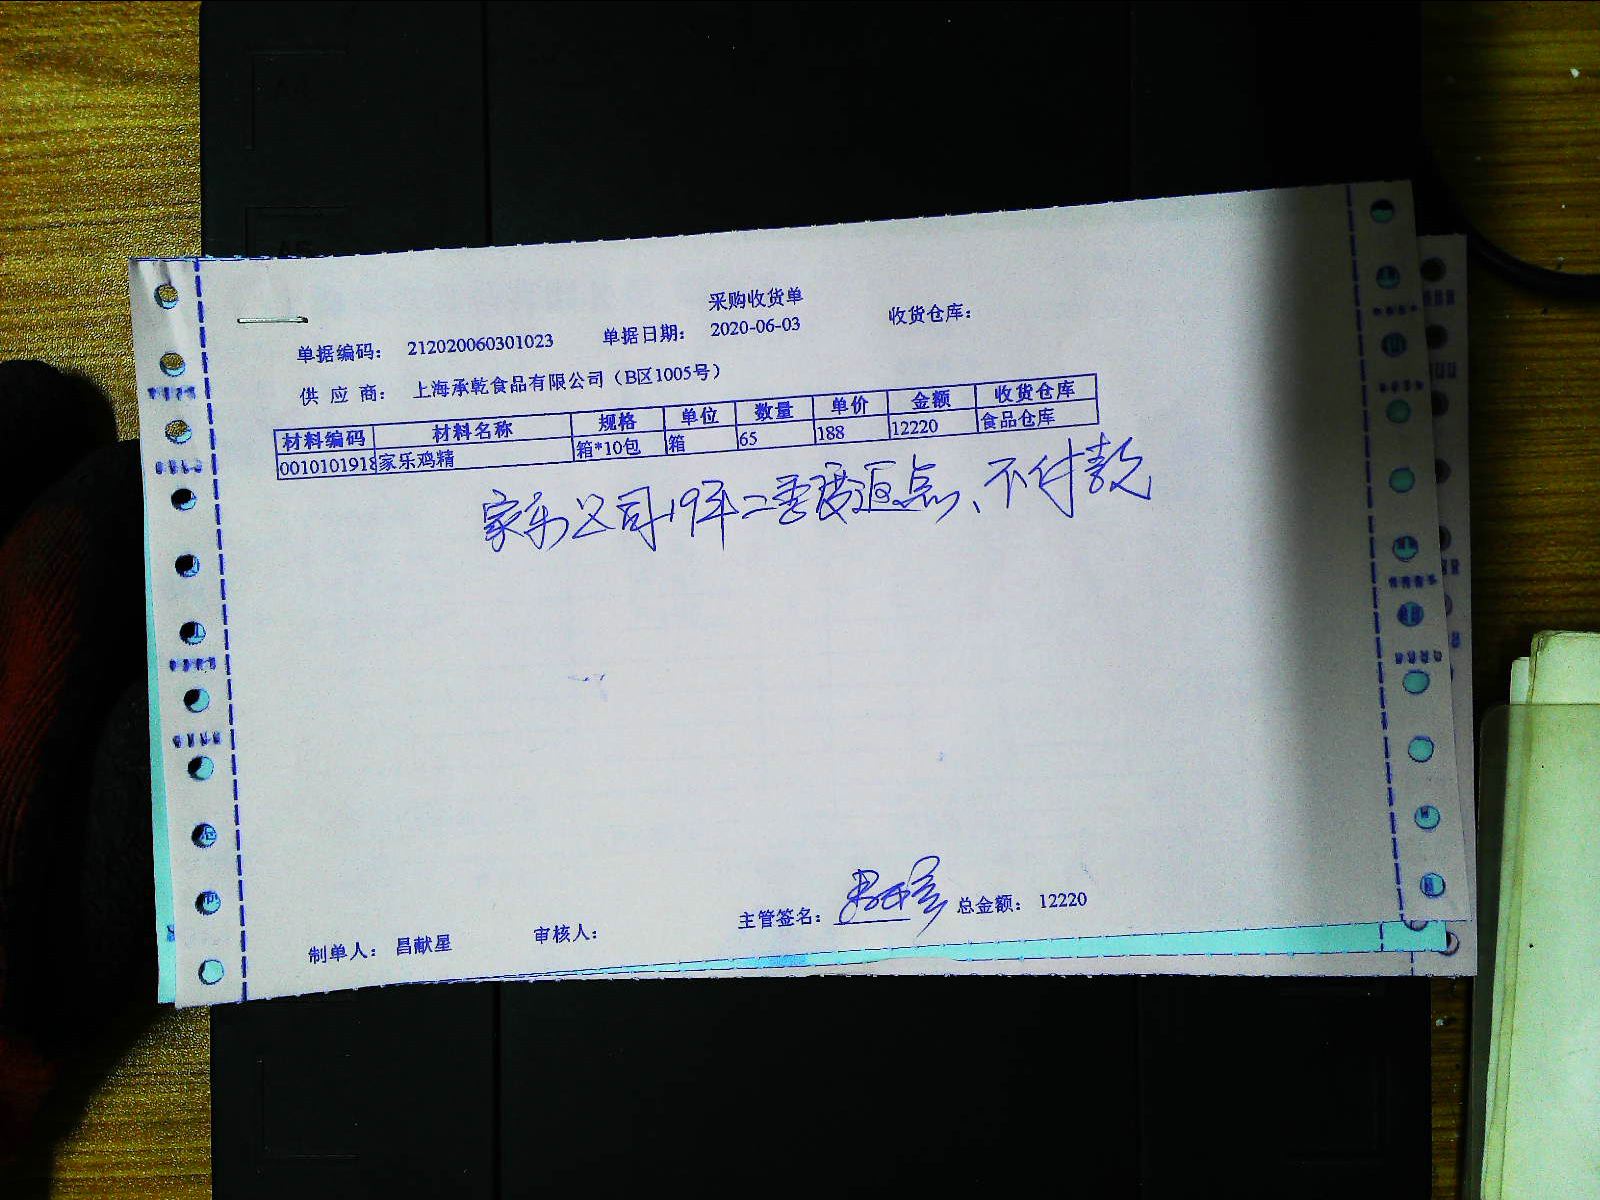 采购收货单
单据编码： 212020060301023 单据日期： 2020-06-03 收货仓库：
供 应 商： 上海承乾食品有限公司（B区1005号）
材料编码 材料名称 规格 单位 数量 单价 金额 收货仓库
0010101918 家乐鸡精 箱*10包 箱 65 188 12220 食品仓库
家乐公司19年二季度返点、不付款
制单人： 昌献星 审核人： 主管签名： 总金额： 12220